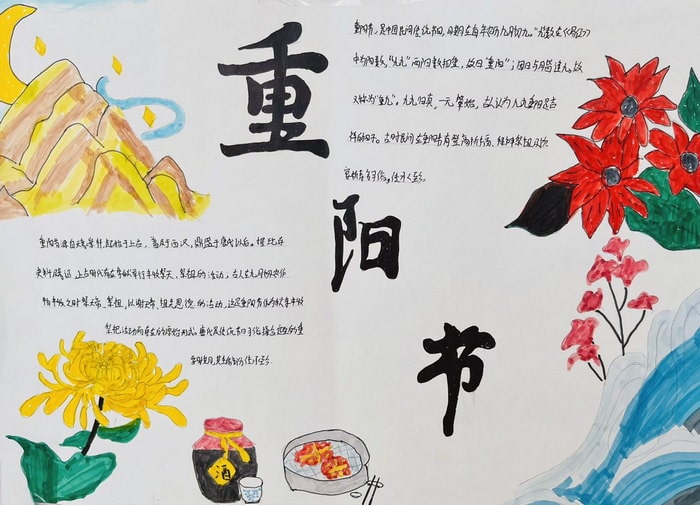 重阳节
重阳节,是中国民间传统节日,日期在每年农历九月初九。"九"数在《易经》
中为阳数,"九九"两阳数相重,故曰"重阳";因日与月皆逢九,故
又称为"重九"。九九归真,一元肇始,古人认为九九重阳是吉
祥的日子。古时民间在重阳节有登高祈福、拜神祭祖及饮
宴祈寿等习俗。
重阳节源自天象崇拜,起始于上古,普及于西汉,鼎盛于唐代以后。据现存
史料及考证,上古时代有在季秋举行丰收祭天、祭祖的活动;古人在九月农作
物丰收之时祭天帝、祭祖,以谢天帝、祖先恩德的活动,这是重阳节作为秋季丰收
祭祀活动而存在的原始形式。唐代是传统节日习俗揉合定型的重
要时期,其主体部分传承至今。
酒